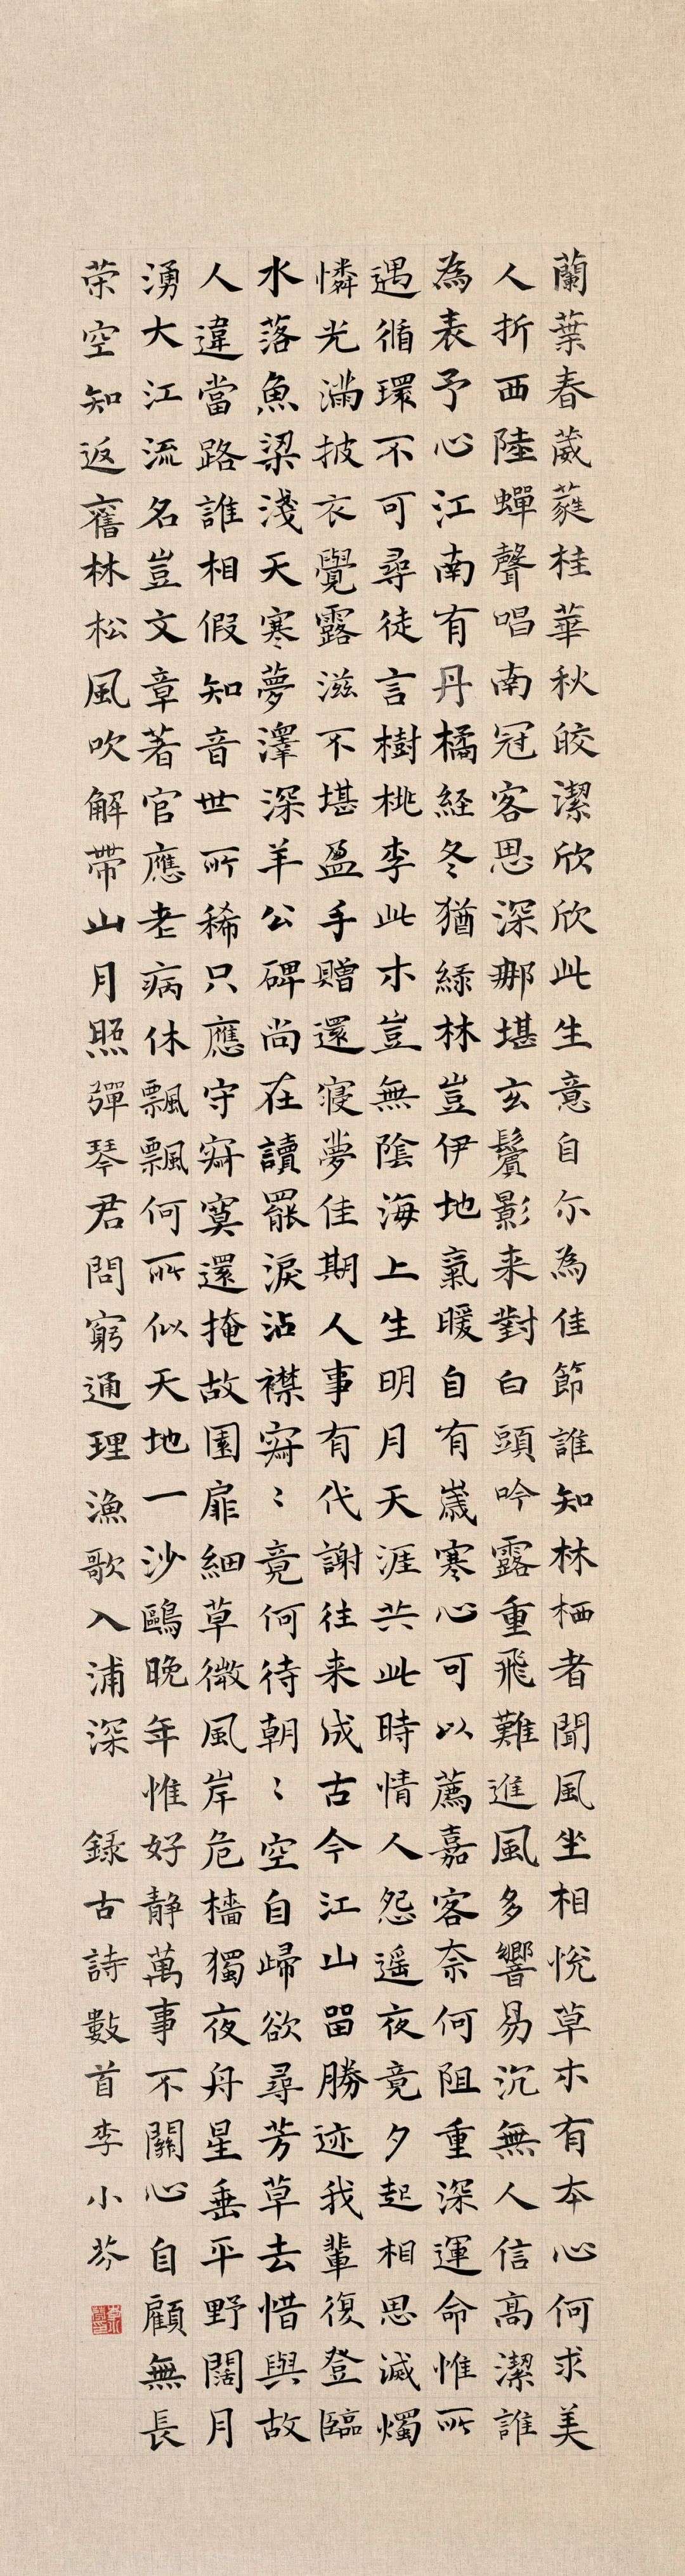 蘭葉春葳蕤桂華秋皎潔欣欣此生意自尒為佳節誰知林栖者聞風坐相悅草木有本心何求美
人折西陸蟬聲唱南冠客思深那堪玄鬢影来對白頭吟露重飛難進風多響易沉無人信高潔誰
為表予心江南有丹橘経冬猶緑林豈伊地氣暖自有歲寒心可以薦嘉客奈何阻重深運命惟所
遇循環不可尋徒言樹桃李此木豈無陰海上生明月天涯共此時情人怨遥夜竟夕起相思滅燭
憐光滿披衣覺露滋不堪盈手贈還寢夢佳期人事有代謝往来成古今江山留勝迹我輩復登臨
水落魚梁淺天寒夢澤深羊公碑尚在讀罷淚沾襟寂〻竟何待朝〻空自歸欲尋芳草去惜與故
人違當路誰相假知音世所稀只應守寂寞還掩故園扉細草微風岸危檣獨夜舟星垂平野闊月
湧大江流名豈文章著官應老病休飄飄何所似天地一沙鷗晚年惟好静萬事不關心自顧無長
荣空知返舊林松風吹解帶山月照彈琴君問窮通理漁歌入浦深 録古詩數首李小芬